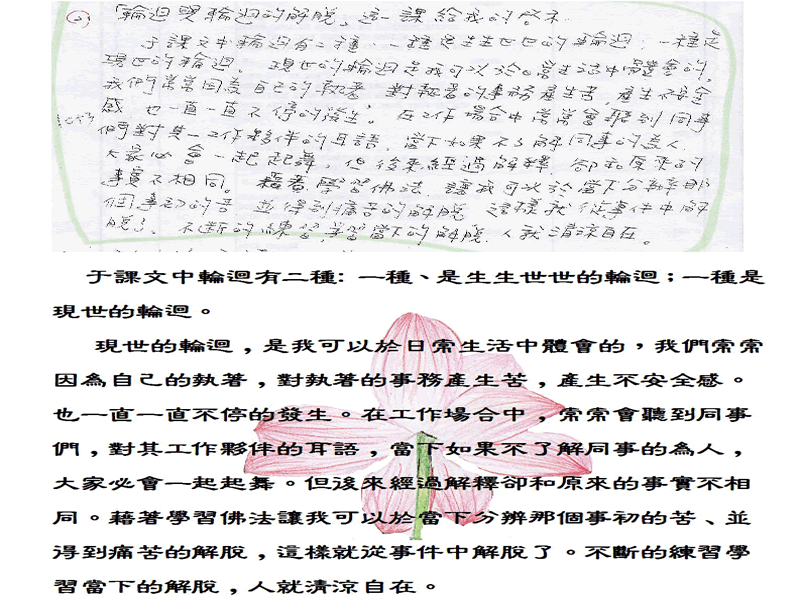 (2) 「輪迴與輪迴的解脫」這一課給我的啓示
于課文中輪迴有二種:一種是生生世世的輪迴,一種是
現世的輪迴。現世的輪迴是我可以於日常生活中體會的,
我們常常因為自己的執著,對執著的事務產生苦,產生不安全
感,也一直一直不停的發生。在工作場合中常常會聽到同事
們對其工作夥伴的耳語,當下如果不了解同事的為人,
大家必會一起起舞,但後來經過解釋,卻和原來的
事實不相同。藉著學習佛法,讓我可以於當下分辨那
個事初的苦,並得到痛苦的解脫,這樣就從事件中解
脫了,不斷的練習,學習當下的解脫,人就清涼自在。
于課文中輪迴有二種:一種、是生生世世的輪迴;一種是
現世的輪迴。
現世的輪迴,是我可以於日常生活中體會的,我們常常
因為自己的執著,對執著的事務產生苦,產生不安全感。
也一直一直不停的發生。在工作場合中,常常會聽到同事
們,對其工作夥伴的耳語,當下如果不了解同事的為人,
大家必會一起起舞。但後來經過解釋卻和原來的事實不相
同。藉著學習佛法讓我可以於當下分辨那個事初的苦、並
得到痛苦的解脫,這樣就從事件中解脫了。不斷的練習學
習當下的解脫,人就清涼自在。